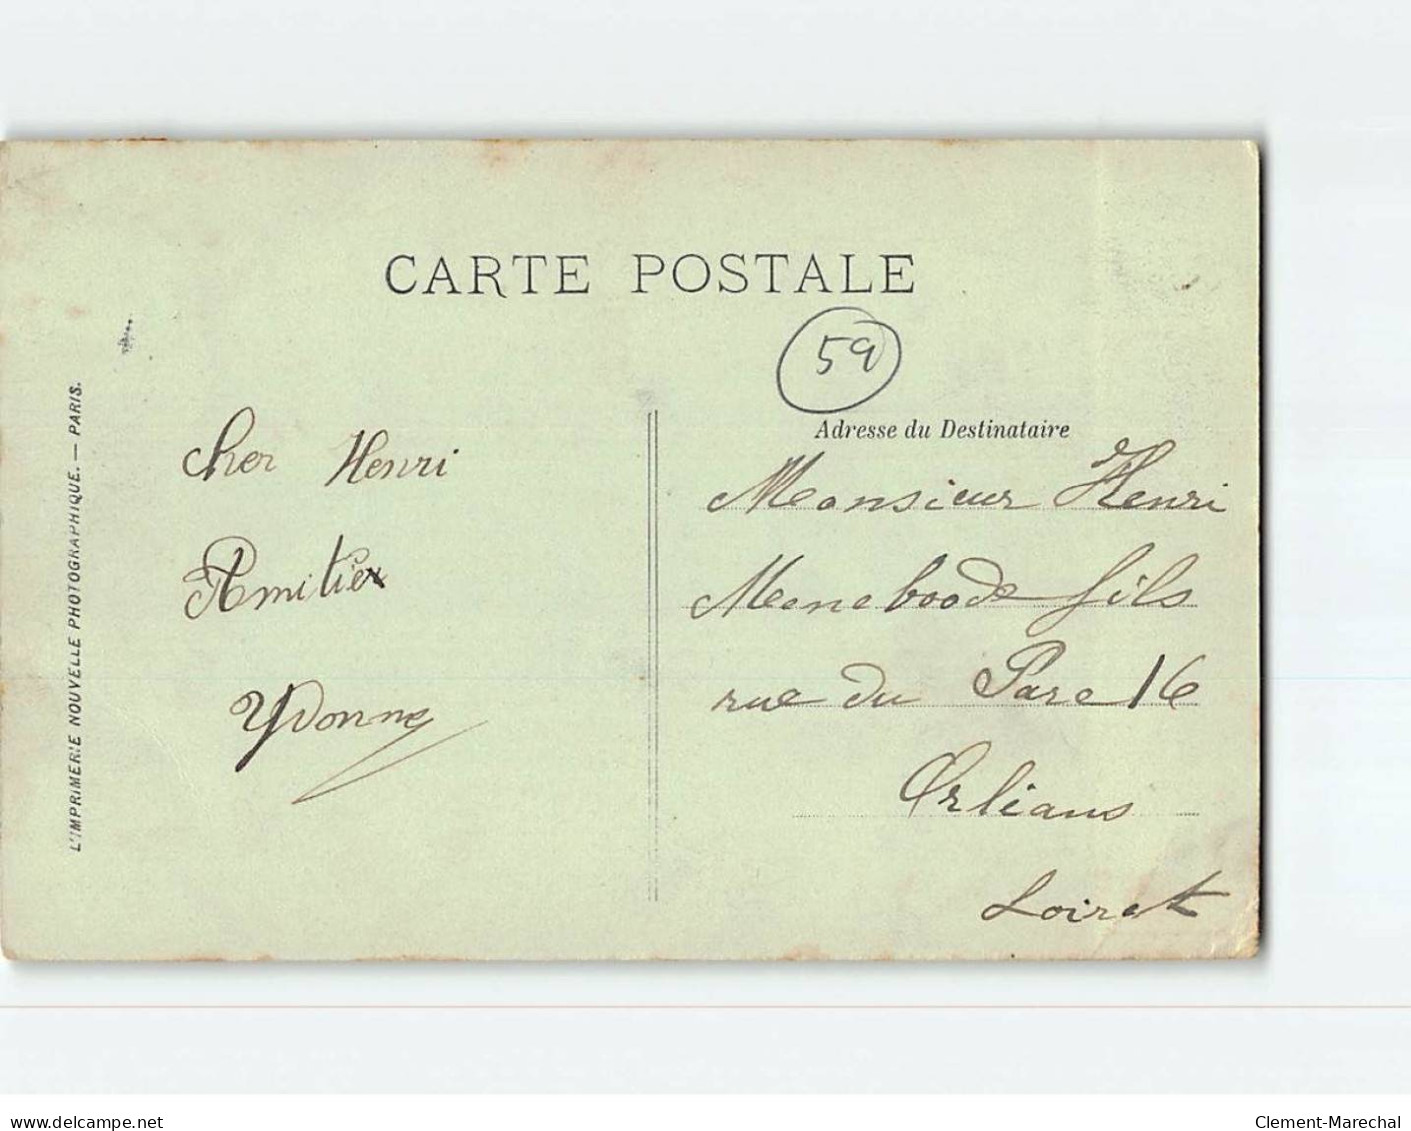 CARTE POSTALE
59
L'IMPRIMERIE NOUVELLE PHOTOGRAPHIQUE. — PARIS.
Cher Henri
Amitiés
Yvonne
Adresse du Destinataire
Monsieur Henri
Meneboode fils
rue du Parc 16
Orlians
Loiret
delcampe.net
Clement-Marechal